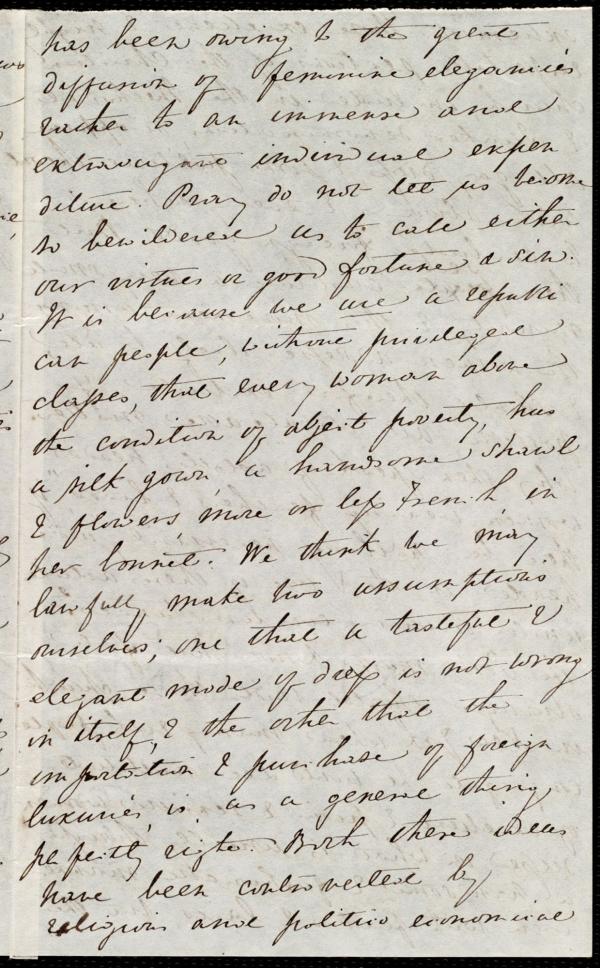 has been owing to the great
diffusion of feminine elegancies
rather to an immense and
extravagant individual expen
diture. Pray do not let us become
so bewildered as to call either
our virtues or good fortune a sin.
It is because we are a republi
can people, without privileged
classes, that every woman above
the condition of abject poverty, has
a silk gown, a handsome shawl
& flowers, more or less French in
her bonnet. We think we may
lawfully make two assumptions
ourselves; one that a tasteful &
elegant mode of dress is not wrong
in itself, & the other that the
importation & purchase of foreign
luxuries, is as a general thing,
perfectly right. Both these ideas
have been controverted by
religious and politico economical